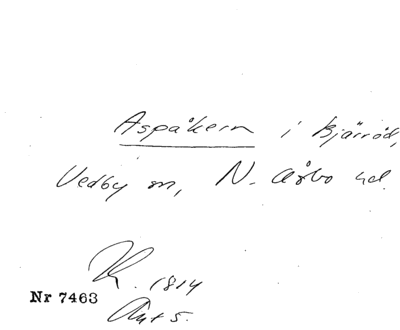 Aspåkern i Bjärröd,
Vedby sn, N. Åsbo hd.
1814
Nr 7463
Akt 5.